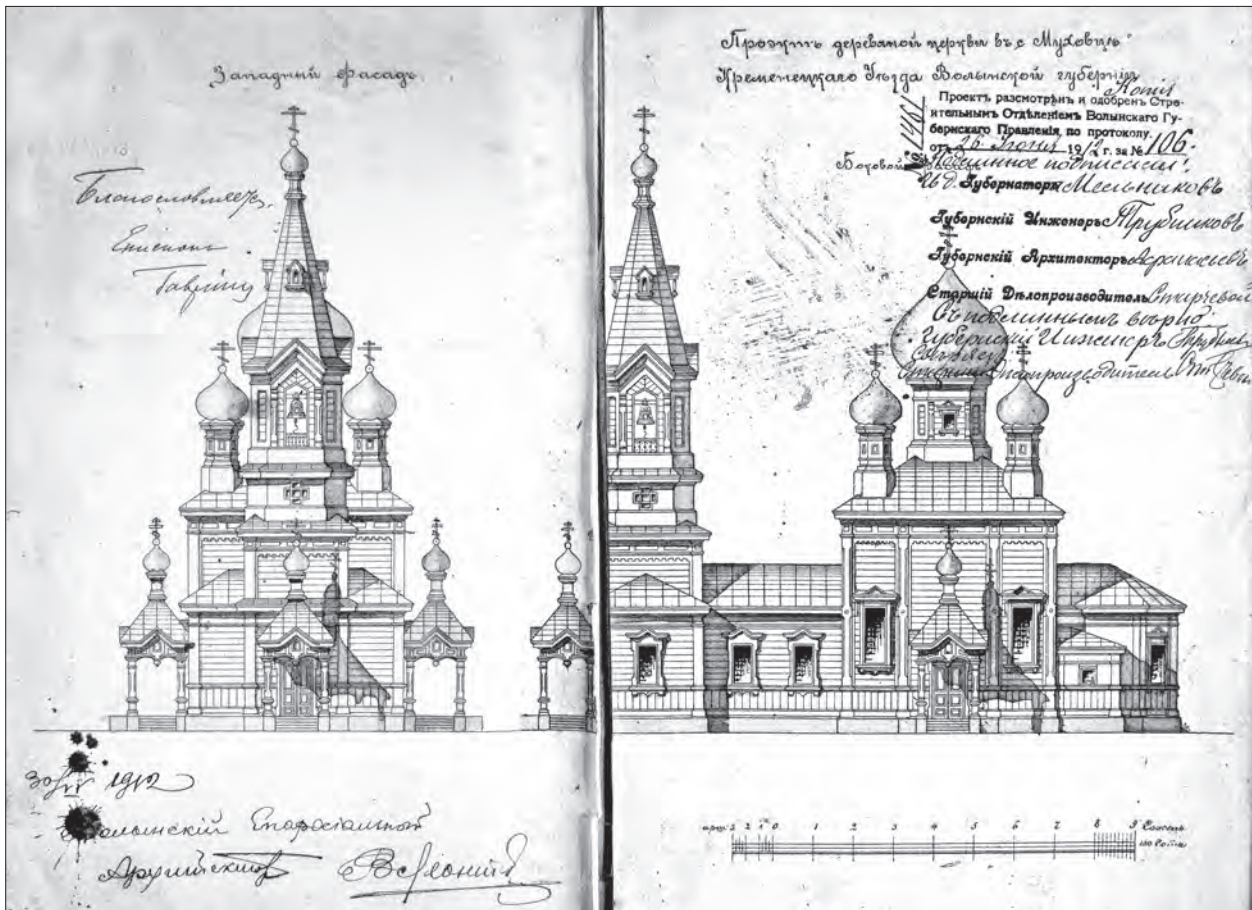 Западный фасадъ.
Благословляется.
Епископъ
Гавріилъ
1912
Волынскій Епархіальный
Архитекторъ
Проэктъ деревяной церкви въ с
Кременецкаго Уѣзда Волынской губерніи
Копія
Проектъ разсмотрѣнъ и одобренъ Стро-
ительнымъ Отдѣленіемъ Волынскаго Гу-
бернскаго Правленія, по протоколу.
отъ 26 Іюня 1912 г. за № 106.
Боковой
Подлинное подписали:
И. д. Губернатора Мельниковъ
Губернскій Инженеръ Трубниковъ
Губернскій Архитекторъ
Старшій Дѣлопроизводитель
Съ подлиннымъ вѣрно:
Губернскій Инженеръ
Старшій Дѣлопроизводитель
арш. 3 2 1 0 1 2 3 4 5 6 7 8 9 Сажень